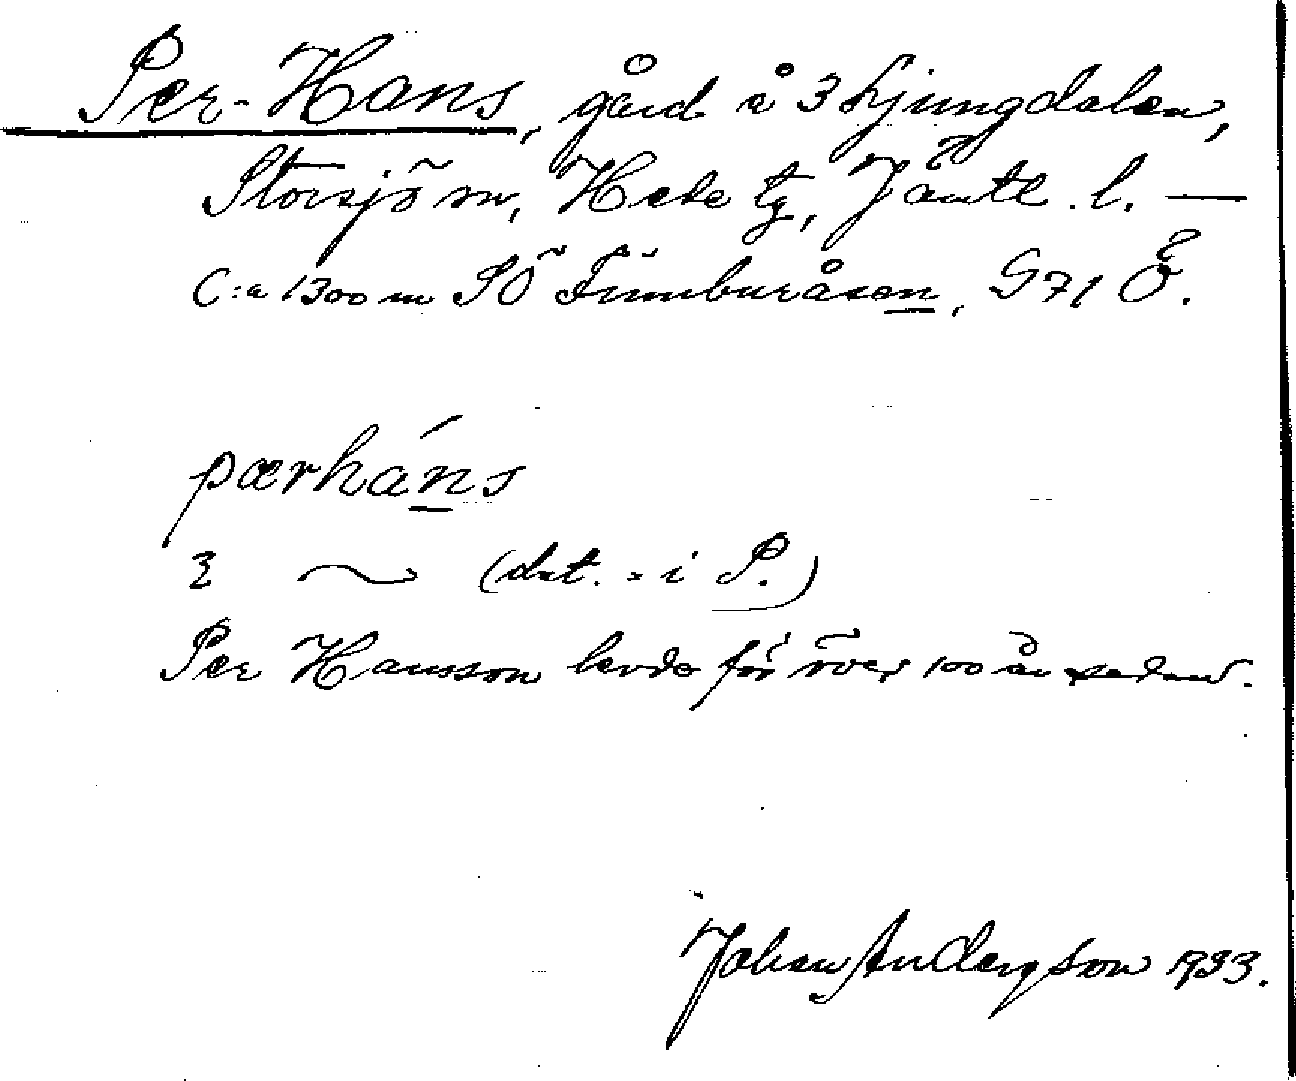 Per-Hans, gård å 3 Ljungdalen,
Storsjö sn, Hede tg, Jämtl. l. —
C:a 1300 m SÖ Finnburåsen, G71 Ö.
pærháns
ξ ~ (dat. = i P.)
Per Hansson levde för över 100 år sedan.
Johan Anderson 1933.